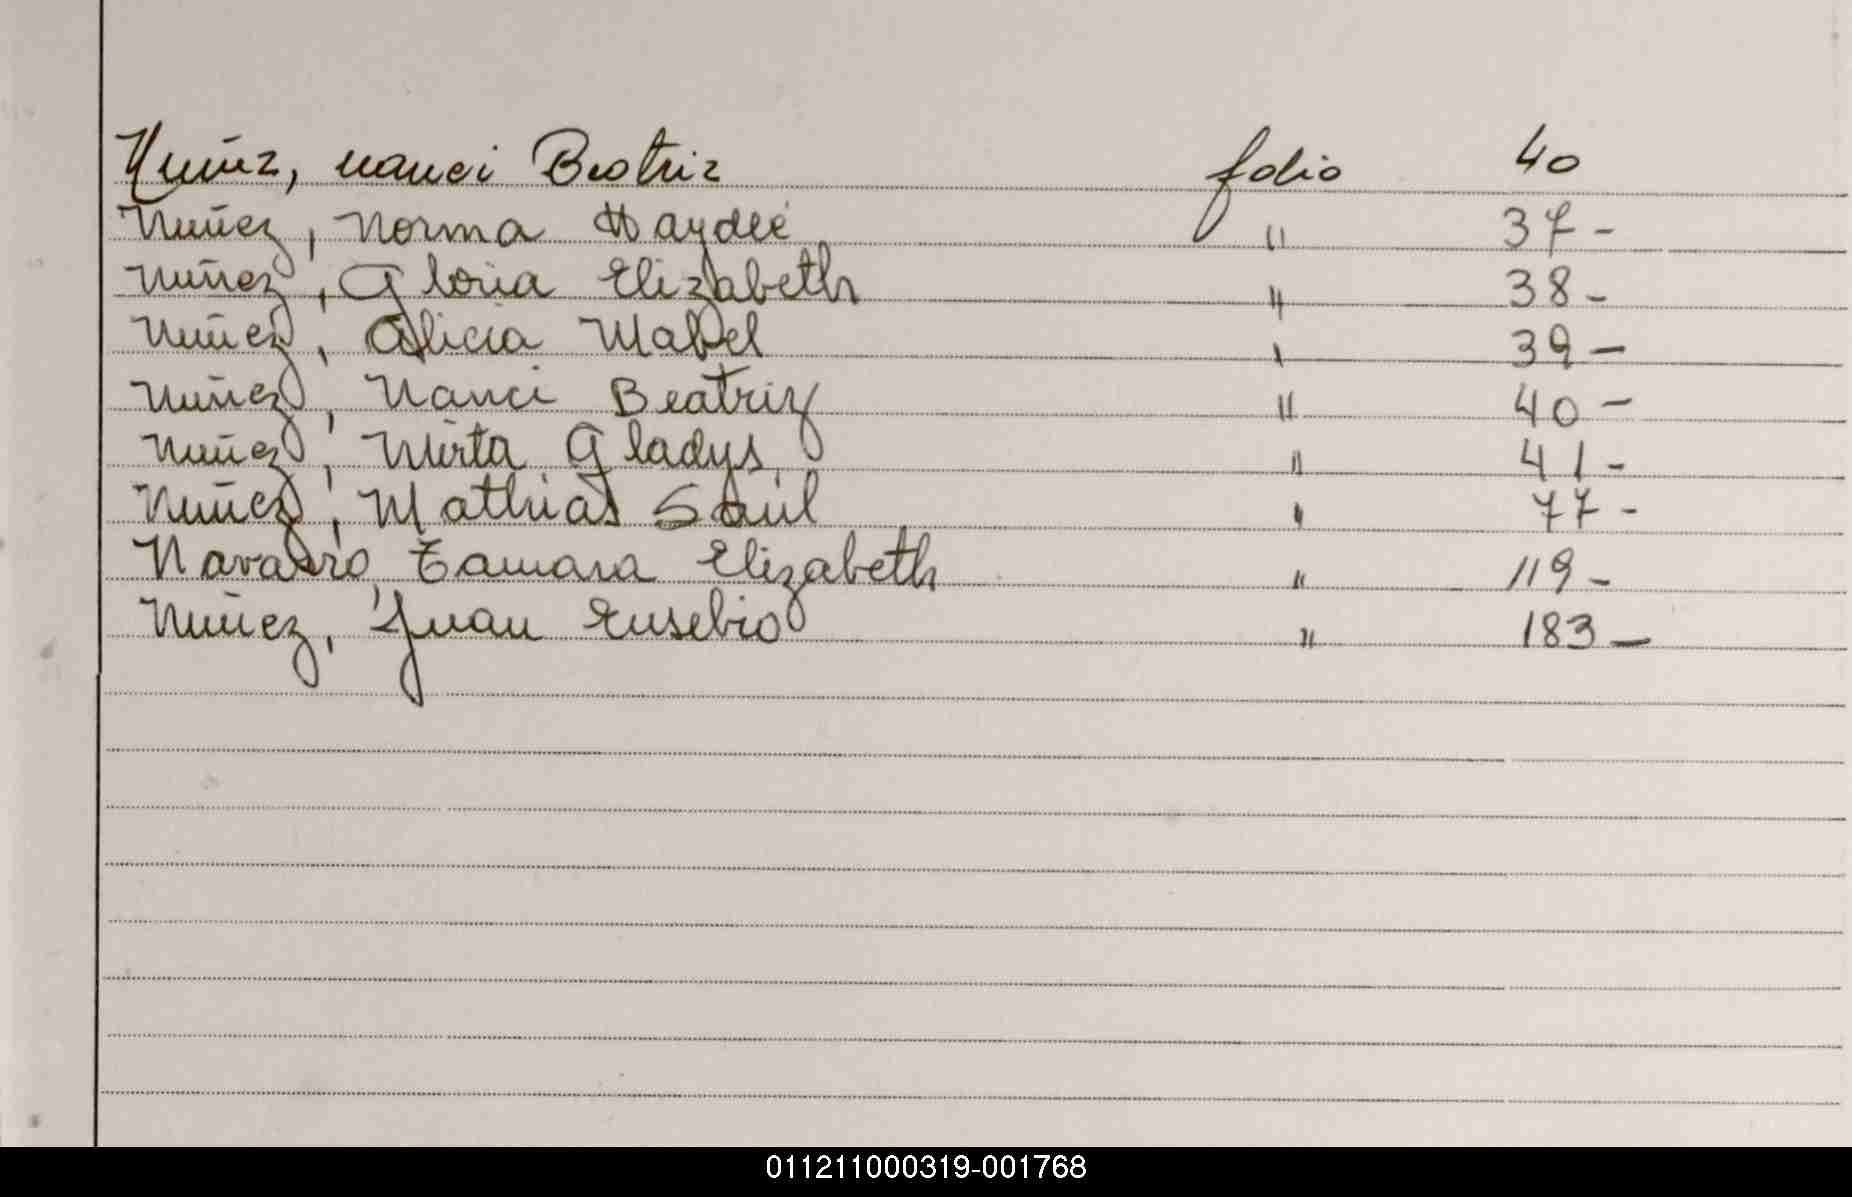 Nuñez, Nanci Beatriz folio 40
Nuñez, Norma Haydeé " 37-
Nuñez, Gloria Elizabeth " 38-
Nuñez, Alicia Mabel " 39-
Nuñez, Nanci Beatriz " 40-
Nuñez, Mirta Gladys " 41-
Nuñez, Mathias Saúl " 77-
Navarro, Tamara Elizabeth " 119-
Nuñez, Juan Eusebio " 183-
011211000319-001768